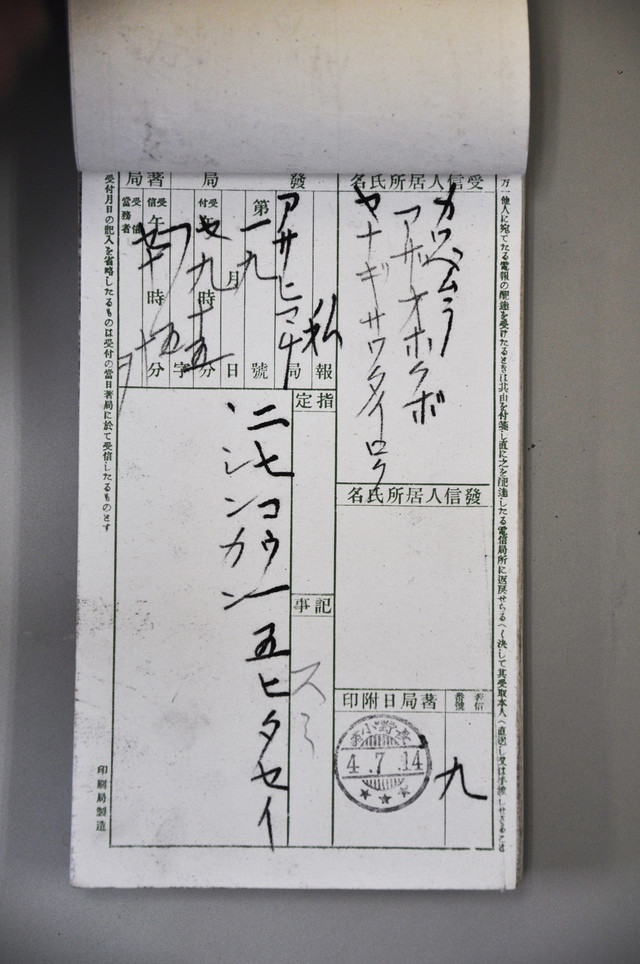 他人に宛てたる電報の配達を受けたるときは其由を付箋し直に之を配達したる電信局所に返戻せらるへく決して其受取本人へ直送し又は手渡しせさること
受信人居所氏名
カワベムラ
アザオホクボ
ヤナギサワタイロウ
發信人居所氏名
著局日附印
4.7.14
著信番號
九
發局
アサヒマチ局
私報
第一九號
月日
受付
九時十五分
字
著局
受信
午
時
五分
受信當務者
指定
記事
スミ
二七コウ一五ヒタセイ
シンカン
受付月日の記入を省略したるものは受付の當日著局に於て受信したるものとす
印刷局製造